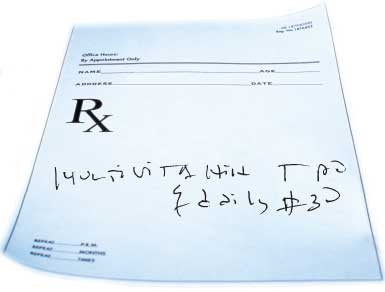 Office Hours:
By Appointment Only
NAME AGE
ADDRESS DATE
Rx
MULTIVITAMIN T PO
daily #30
REPEAT P.R.N.
REPEAT MONTHS
REPEAT TIMES